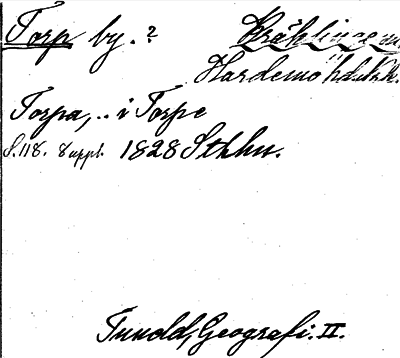 Torp by.? Kräklinge sn.
Hardemo hd. Nrk.
Torpa, .. i Torpe
S. 118. 8 uppl. 1828 Sthlm.
Tuneld, Geografi. II.